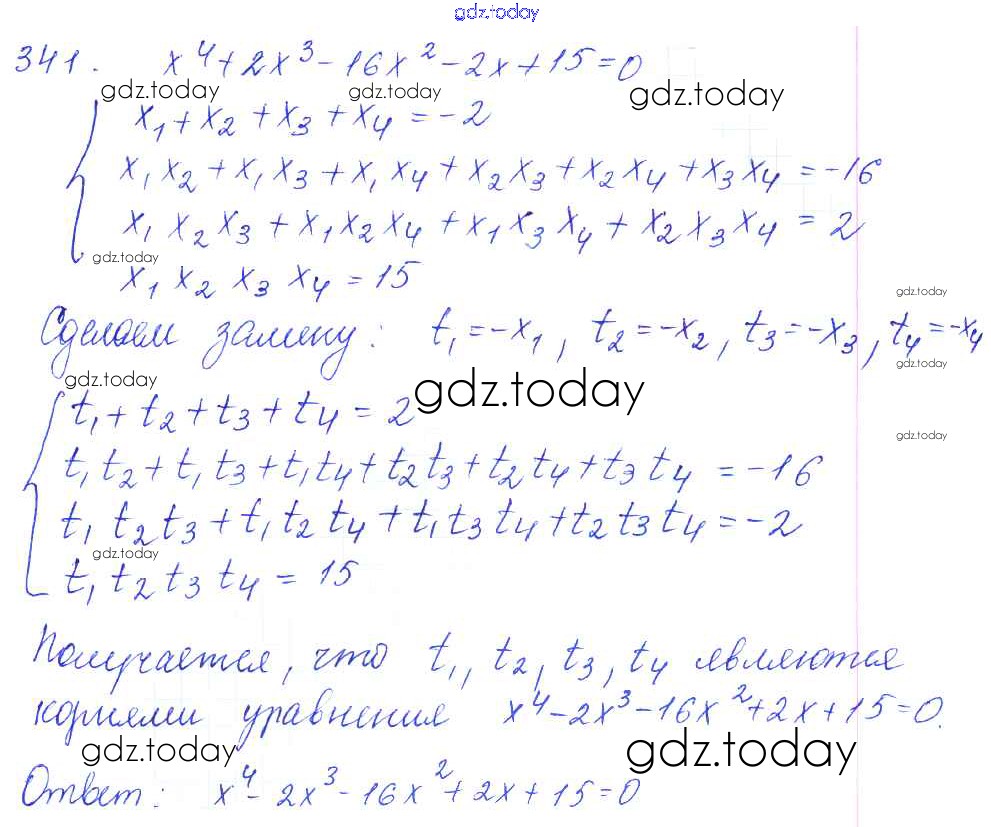 gdz.today
341. x⁴+2x³-16x²-2x+15=0
gdz.today gdz.today gdz.today
x₁+x₂+x₃+x₄=-2
x₁x₂+x₁x₃+x₁x₄+x₂x₃+x₂x₄+x₃x₄=-16
x₁x₂x₃+x₁x₂x₄+x₁x₃x₄+x₂x₃x₄=2
gdz.today
x₁x₂x₃x₄=15
gdz.today
Сделаем замену: t₁=-x₁, t₂=-x₂, t₃=-x₃, t₄=-x₄
gdz.today
gdz.today gdz.today
t₁+t₂+t₃+t₄=2
gdz.today
t₁t₂+t₁t₃+t₁t₄+t₂t₃+t₂t₄+t₃t₄=-16
t₁t₂t₃+t₁t₂t₄+t₁t₃t₄+t₂t₃t₄=-2
gdz.today
t₁t₂t₃t₄=15
Получается, что t₁, t₂, t₃, t₄ являются
корнями уравнения x⁴-2x³-16x²+2x+15=0.
gdz.today gdz.today
Ответ: x⁴-2x³-16x²+2x+15=0